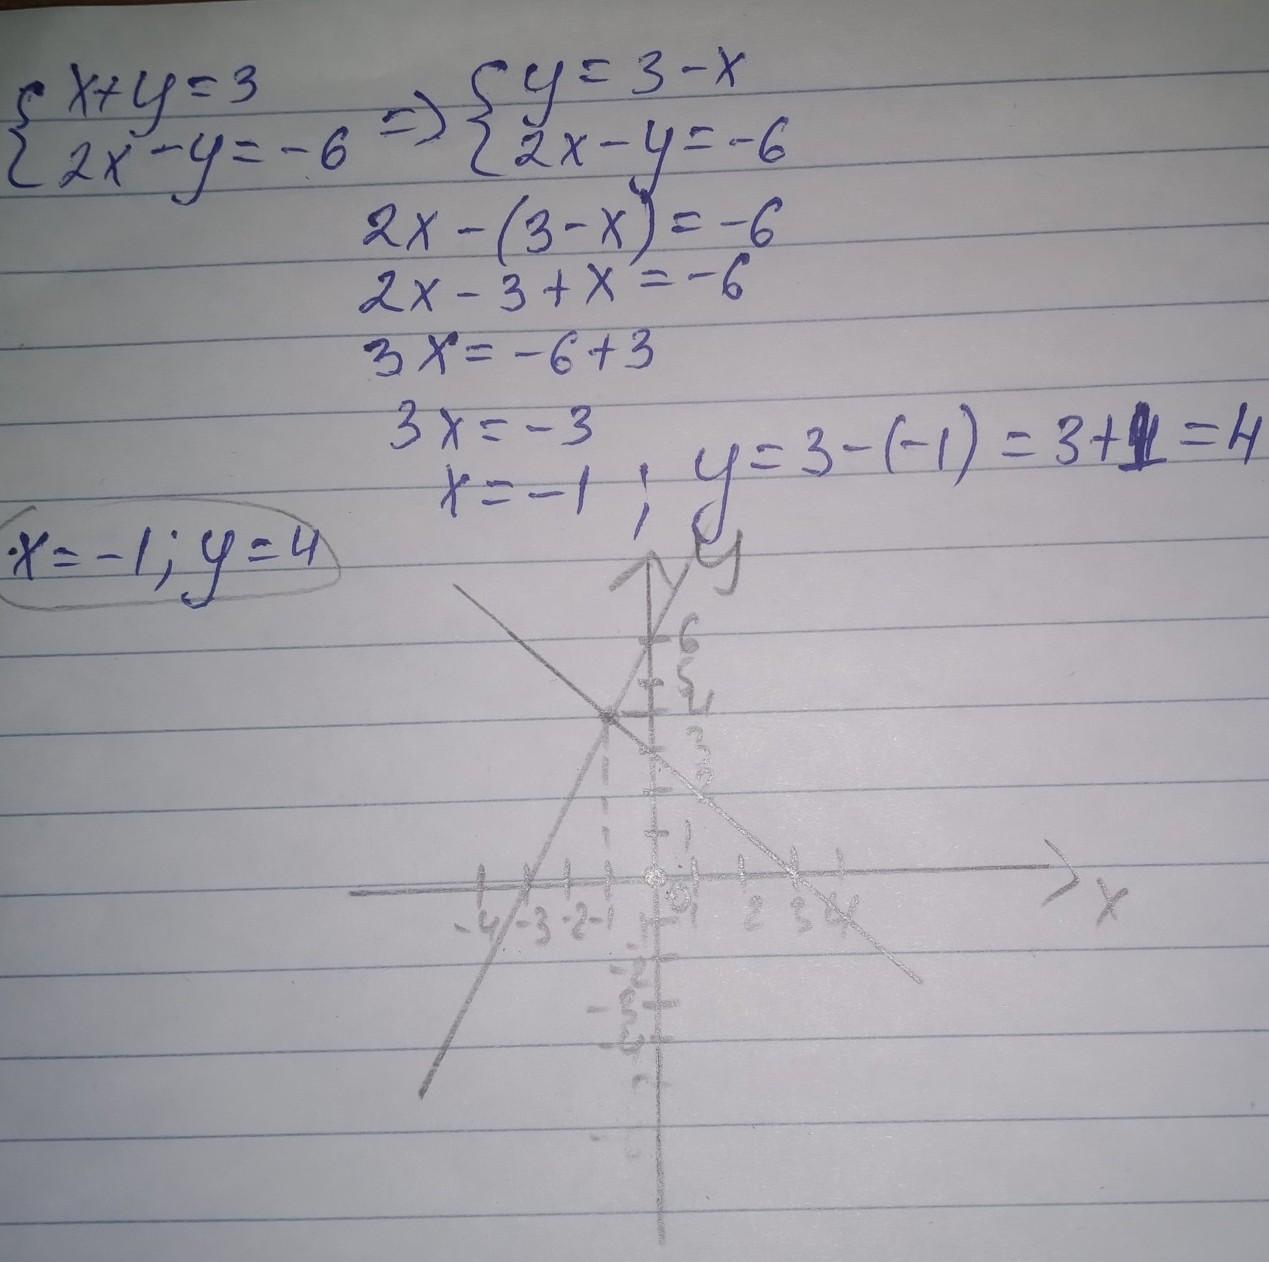 { x+y=3 => { y=3-x
{ 2x-y=-6 { 2x-y=-6
2x-(3-x)=-6
2x-3+x=-6
3x=-6+3
3x=-3
x=-1 ; y=3-(-1)=3+1=4
x=-1; y=4
y
6
5
4
3
2
1
-4 -3 -2 -1 0 1 2 3 4 x
-2
-3
-4